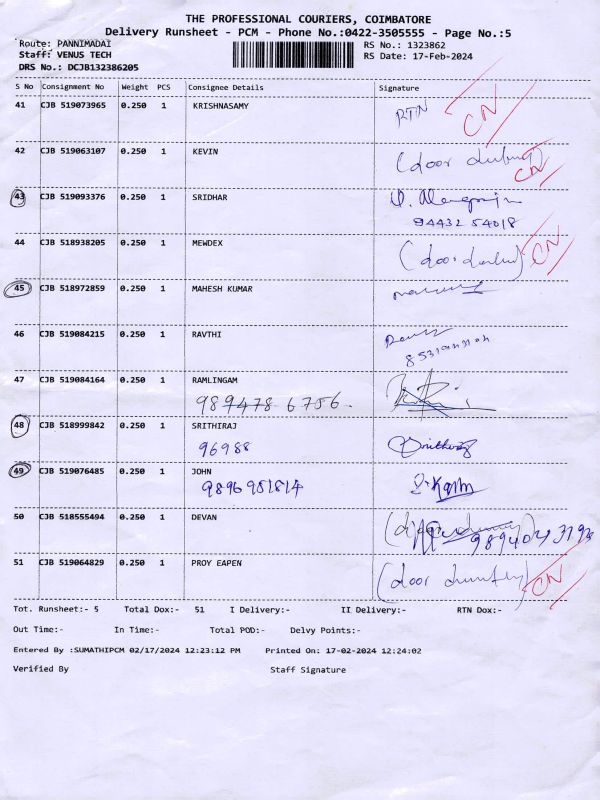 THE PROFESSIONAL COURIERS, COIMBATORE
Delivery Runsheet - PCM - Phone No.:0422-3505555 - Page No.:5
Route: PANNIMADAI
RS No.: 1323862
Staff: VENUS TECH
RS Date: 17-Feb-2024
DRS No.: DCJB132386205
S No Consignment No Weight PCS Consignee Details Signature
41 CJB 519073965 0.250 1 KRISHNASAMY RTN CN
42 CJB 519063107 0.250 1 KEVIN (door CN
43 CJB 519093376 0.250 1 SRIDHAR
94432 54018
44 CJB 518938205 0.250 1 MEWDEX (door CN
45 CJB 518972859 0.250 1 MAHESH KUMAR
46 CJB 519084215 0.250 1 RAVTHI
47 CJB 519084164 0.250 1 RAMLINGAM
989478 6756
48 CJB 518999842 0.250 1 SRITHIRAJ
96988
49 CJB 519076485 0.250 1 JOHN
9896951814
50 CJB 518555494 0.250 1 DEVAN
51 CJB 519064829 0.250 1 PROY EAPEN (door CN
Tot. Runsheet:- 5 Total Dox:- 51 I Delivery:- II Delivery:- RTN Dox:-
Out Time:- In Time:- Total POD:- Delvy Points:-
Entered By :SUMATHIPCM 02/17/2024 12:23:12 PM Printed On: 17-02-2024 12:24:02
Verified By Staff Signature